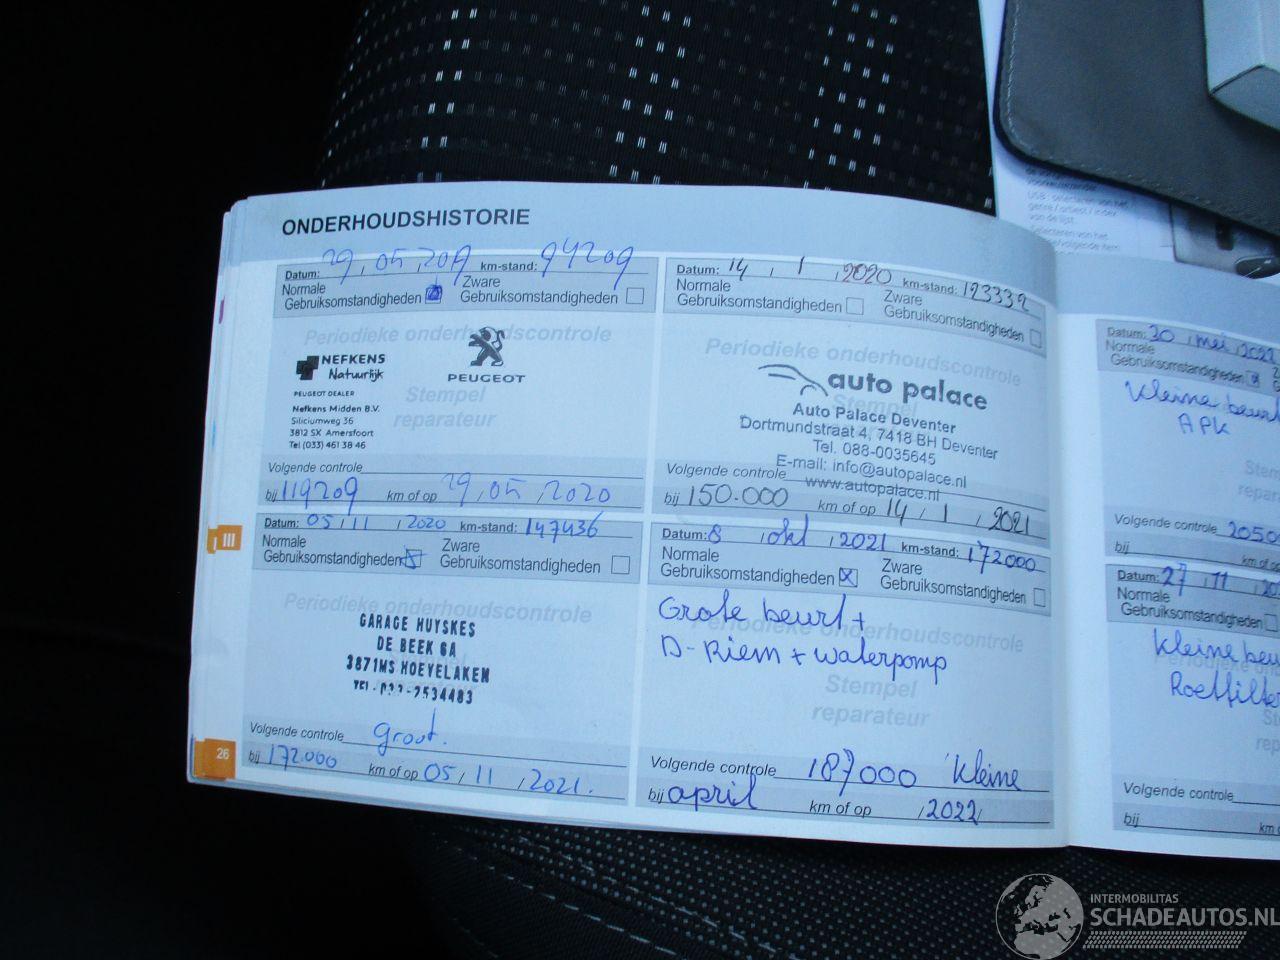 ONDERHOUDSHISTORIE
Datum: 29, 05, 209 km-stand: 94209
Normale Gebruiksomstandigheden
Zware Gebruiksomstandigheden
Periodieke onderhoudscontrole
Stempel
reparateur
NEFKENS
Natuurlijk
PEUGEOT
PEUGEOT DEALER
Nefkens Midden B.V.
Siliciumweg 36
3812 SX Amersfoort
Tel (033) 461 38 46
Volgende controle
bij 119209 km of op 29, 05, 2020
Datum: 14 , 1 , 2020 km-stand: 123332
Normale Gebruiksomstandigheden
Zware Gebruiksomstandigheden
Periodieke onderhoudscontrole
Stempel
reparateur
auto palace
Auto Palace Deventer
Dortmundstraat 4, 7418 BH Deventer
Tel. 088-0035645
E-mail: info@autopalace.nl
www.autopalace.nl
Volgende controle
bij 150.000 km of op 14 / 1 , 2021
Datum: 05 / 11 , 2020 km-stand: 147436
Normale Gebruiksomstandigheden
Zware Gebruiksomstandigheden
Periodieke onderhoudscontrole
Stempel
GARAGE HUYSKES
DE BEEK 6A
3871MS HOEVELAKEN
TEL. 033-2534483
Volgende controle groot.
bij 172.000 km of op 05 / 11 , 2021.
Datum: 8 okt , 2021 km-stand: 172000
Normale Gebruiksomstandigheden X
Zware Gebruiksomstandigheden
Periodieke onderhoudscontrole
Stempel
reparateur
Grote beurt +
D-Riem + waterpomp
Volgende controle 187000 kleine
bij april km of op , 2022 /
III
26
Datum: 30 , mei , 2022
Normale
Gebruiksomstandigheden
Kleine beurt
APK
Stem
reparat
Volgende controle 2050
bij km of op
Datum: 27 , 11 , 20
Normale
Gebruiksomstandigheden
Kleine beu
Periodieke
Roetfilter
St
rep
Volgende controle
bij km
INTERMOBILITAS
SCHADEAUTOS.NL